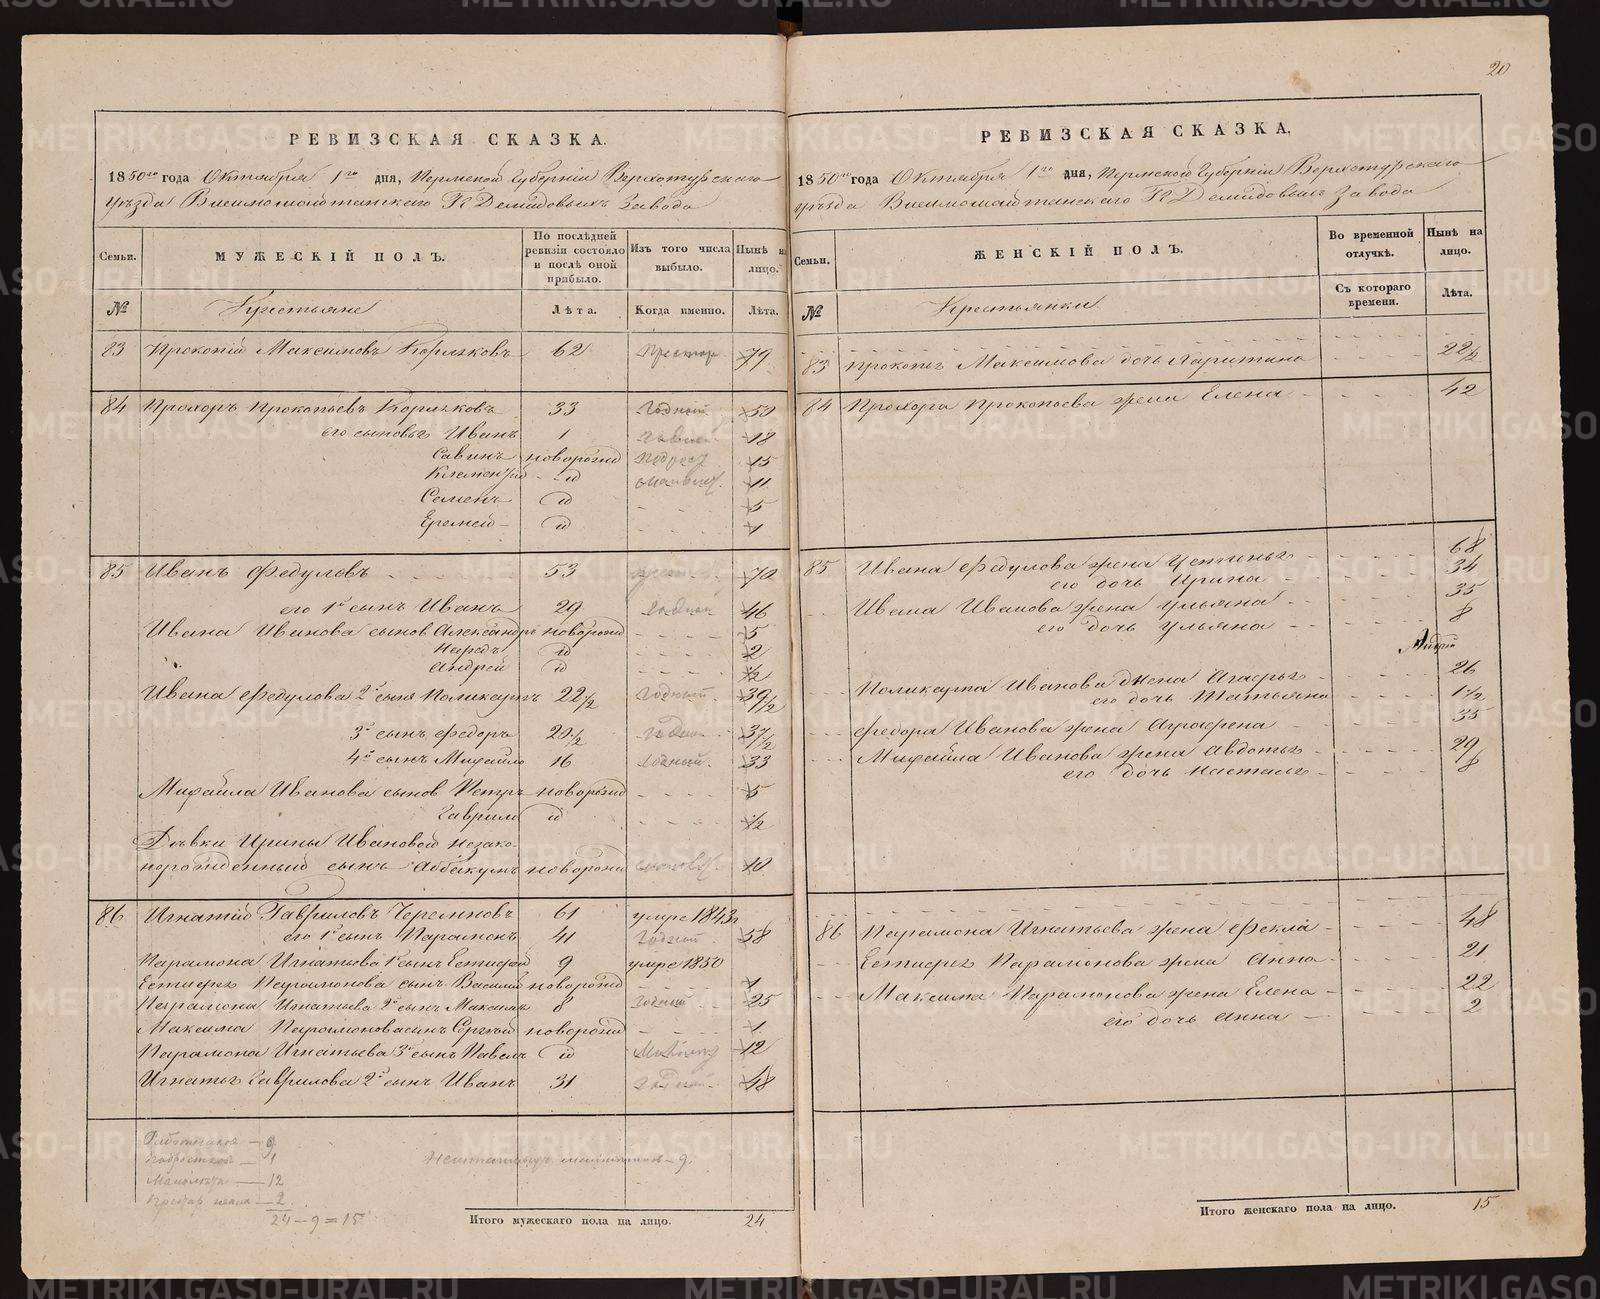 20
РЕВИЗСКАЯ СКАЗКА.
1850го года Октября 1го дня, Пермской Губернии Верхотурскаго
уѣзда Висимошайтанскаго ГГ Демидовыхъ Завода
Семьи.
МУЖЕСКІЙ ПОЛЪ.
По послѣдней ревизіи состояло и послѣ оной прибыло.
Изъ того числа выбыло.
Нынѣ на лицо.
№
Крестьяне
Лѣта.
Когда именно.
Лѣта.
83 Прокопій Максимовъ Корюковъ 62 престар 79
84 Прохоръ Прокопьевъ Корюковъ 33 годный 50
его сыновья Иванъ 1 18
Савинъ новорожд подрос 15
Климентій id малол 11
Семенъ id 5
Еремей id 1
85 Иванъ Федуловъ 53 70
его 1й сынъ Иванъ 29 годный 46
Ивана Иванова сынов Александръ новорожд 5
id 2
Андрей id 1/2
Ивана Федулова 2й сынъ Поликарпъ 22 1/2 годный 39 1/2
3й сынъ Федоръ 20 1/2 годный 37 1/2
4й сынъ Михайло 16 годный 33
Михайла Иванова сынов Петръ новорожд 5
Гаврило id 1/2
Дѣвки Ирины Ивановой незако-
норожденный сынъ Аввакумъ новорожд 10
86 Игнатій Гавриловъ Черемновъ 61 умре 1843г
его 1й сынъ Парамонъ 41 годный 58
Парамона Игнатьева 1й сынъ Естифей 9 умре 1850
Естифея Парамонова сынъ Василій новорожд 1
Парамона Игнатьева 2й сынъ Максимъ 8 годный 25
Максима Парамонова сынъ Сергѣй новорожд 1
Парамона Игнатьева 3й сынъ Павелъ id 12
Игнатья Гаврилова 2й сынъ Иванъ 31 годный 48
Работников — 9
Подростков — 1
Малолѣт — 12
Престар — 2
24 — 9 = 15
— 9.
Итого мужескаго пола на лицо. 24
РЕВИЗСКАЯ СКАЗКА.
1850го года Октября 1го дня, Пермской Губерніи Верхотурскаго
уѣзда Висимошайтанскаго ГГ Демидовыхъ Завода
Семьи.
ЖЕНСКІЙ ПОЛЪ.
Во временной отлучкѣ.
Нынѣ на лицо.
№
Крестьянки
Съ котораго времени.
Лѣта.
83 Прокопья Максимова дочь Харитина 22 1/2
84 Прохора Прокопьева жена Елена 42
85 Ивана Федулова жена Устинья 68
его дочь Ирина 34
Ивана Иванова жена Ульяна 35
его дочь Ульяна 8
Поликарпа Иванова жена Агафья 26
его дочь Татьяна 1 1/2
Федора Иванова жена Аграфена 35
Михайла Иванова жена Авдотья 29
его дочь Настасья 8
86 Парамона Игнатьева жена Фекла 48
Естифея Парамонова жена Анна 21
Максима Парамонова жена Елена 22
его дочь Анна 2
Итого женскаго пола на лицо. 15
METRIKI.GASO-URAL.RU